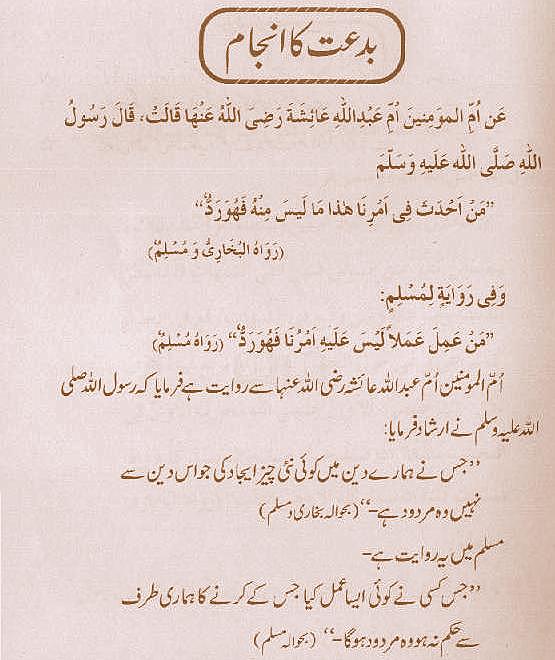 بدعت کا انجام
عَن اُمِّ المؤمِنينَ اُمِّ عَبْدِاللّٰهِ عَائِشَةَ رَضِیَ اللّٰهُ عَنْهَا قَالَتْ، قَالَ رَسُولُ
اللّٰهِ صَلَّی اللّٰه عَلَیهِ وَسَلَّمَ
”مَنْ اَحْدَثَ فِی اَمْرِنَا هٰذا مَا لَیسَ مِنْهُ فَهُوَرَدٌّ“
(رَوَاهُ البُخَارِیُّ وَ مُسْلِمٌ)
وَفِی رَوَایَةٍ لِمُسْلِمٍ:
”مَنْ عَمِلَ عَمَلاً لَیْسَ عَلَیهِ اَمْرُنَا فَهُوَرَدٌّ“ (رَوَاهُ مُسْلِمٌ)
اُمّ المومنین اُمّ عبداللہ عائشہ رضی اللہ عنہا سے روایت ہے فرمایا کہ رسول اللہ صلی
اللہ علیہ وسلم نے ارشاد فرمایا:
”جس نے ہمارے دین میں کوئی نئی چیز ایجاد کی جو اس دین سے
نہیں وہ مردود ہے۔“ (بحوالہ بخاری و مسلم)
مسلم میں یہ روایت ہے۔
”جس کسی نے کوئی ایسا عمل کیا جس کے کرنے کا ہماری طرف
سے حکم نہ ہو وہ مردود ہوگا۔“ (بحوالہ مسلم)